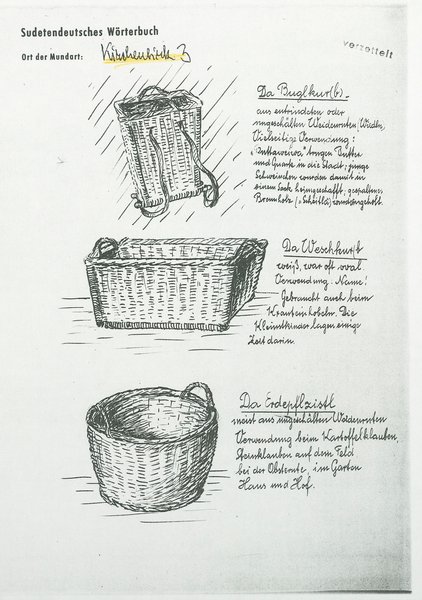 Sudetendeutsches Wörterbuch
Ort der Mundart: Kirchenbirk 3
verzettelt
Da Buglkur(b)
aus entrindeten oder
ungeschälten Weidenruten
Vielseitige Verwendung:
tragen Butter
und Quark in die Stadt; junge
Schweinchen wurden damit in
einem Sack heimgeschafft, gespaltenes
Brennholz („Scheitla) wurde
Da Weschkurb
weiß, war oft oval
Verwendung: Name!
Gebraucht auch beim
Krauteinhobeln. Die
Kleinstkinder lagen einige
Zeit darin.
Da Erdepflzistl
meist aus ungeschälten Weidenruten
Verwendung beim Kartoffelklauben,
Steinklauben auf dem Feld
bei der Obsternte, im Garten
Haus und Hof.